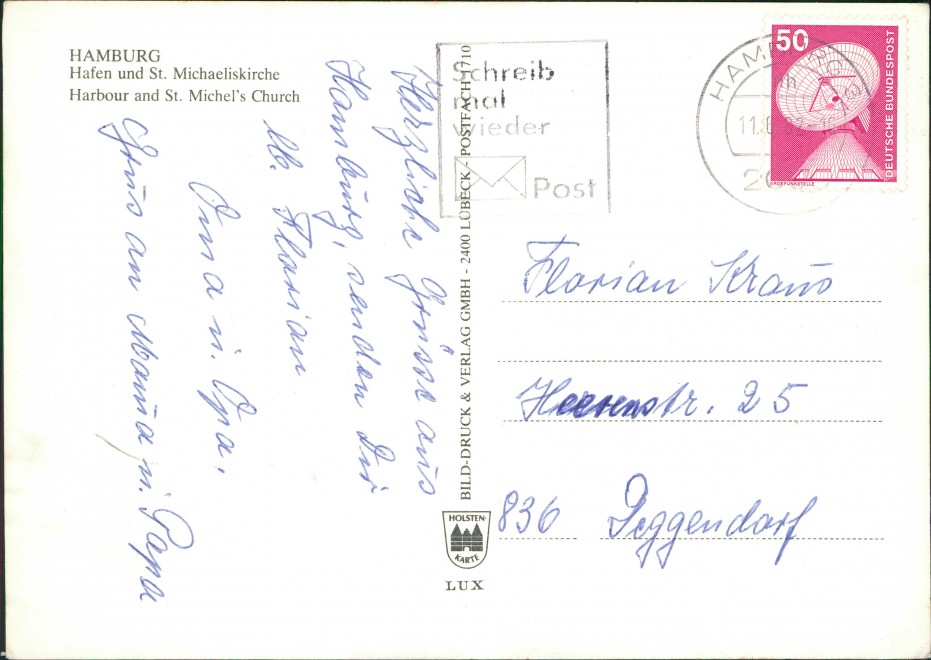 HAMBURG
Hafen und St. Michaeliskirche
Harbour and St. Michel's Church
Herzliche Grüsse aus
Hamburg, senden Dir
lb. Florian
Oma u. Opa.
Gruss an Mama u. Papa
BILD-DRUCK & VERLAG GMBH - 2400 LÜBECK - POSTFACH 1710
HOLSTEN-
KARTE
LUX
Schreib
mal
wieder
Post
50
DEUTSCHE BUNDESPOST
ERDEFUNKSTELLE
Florian Kraus
Heerenstr. 25
836 Deggendorf